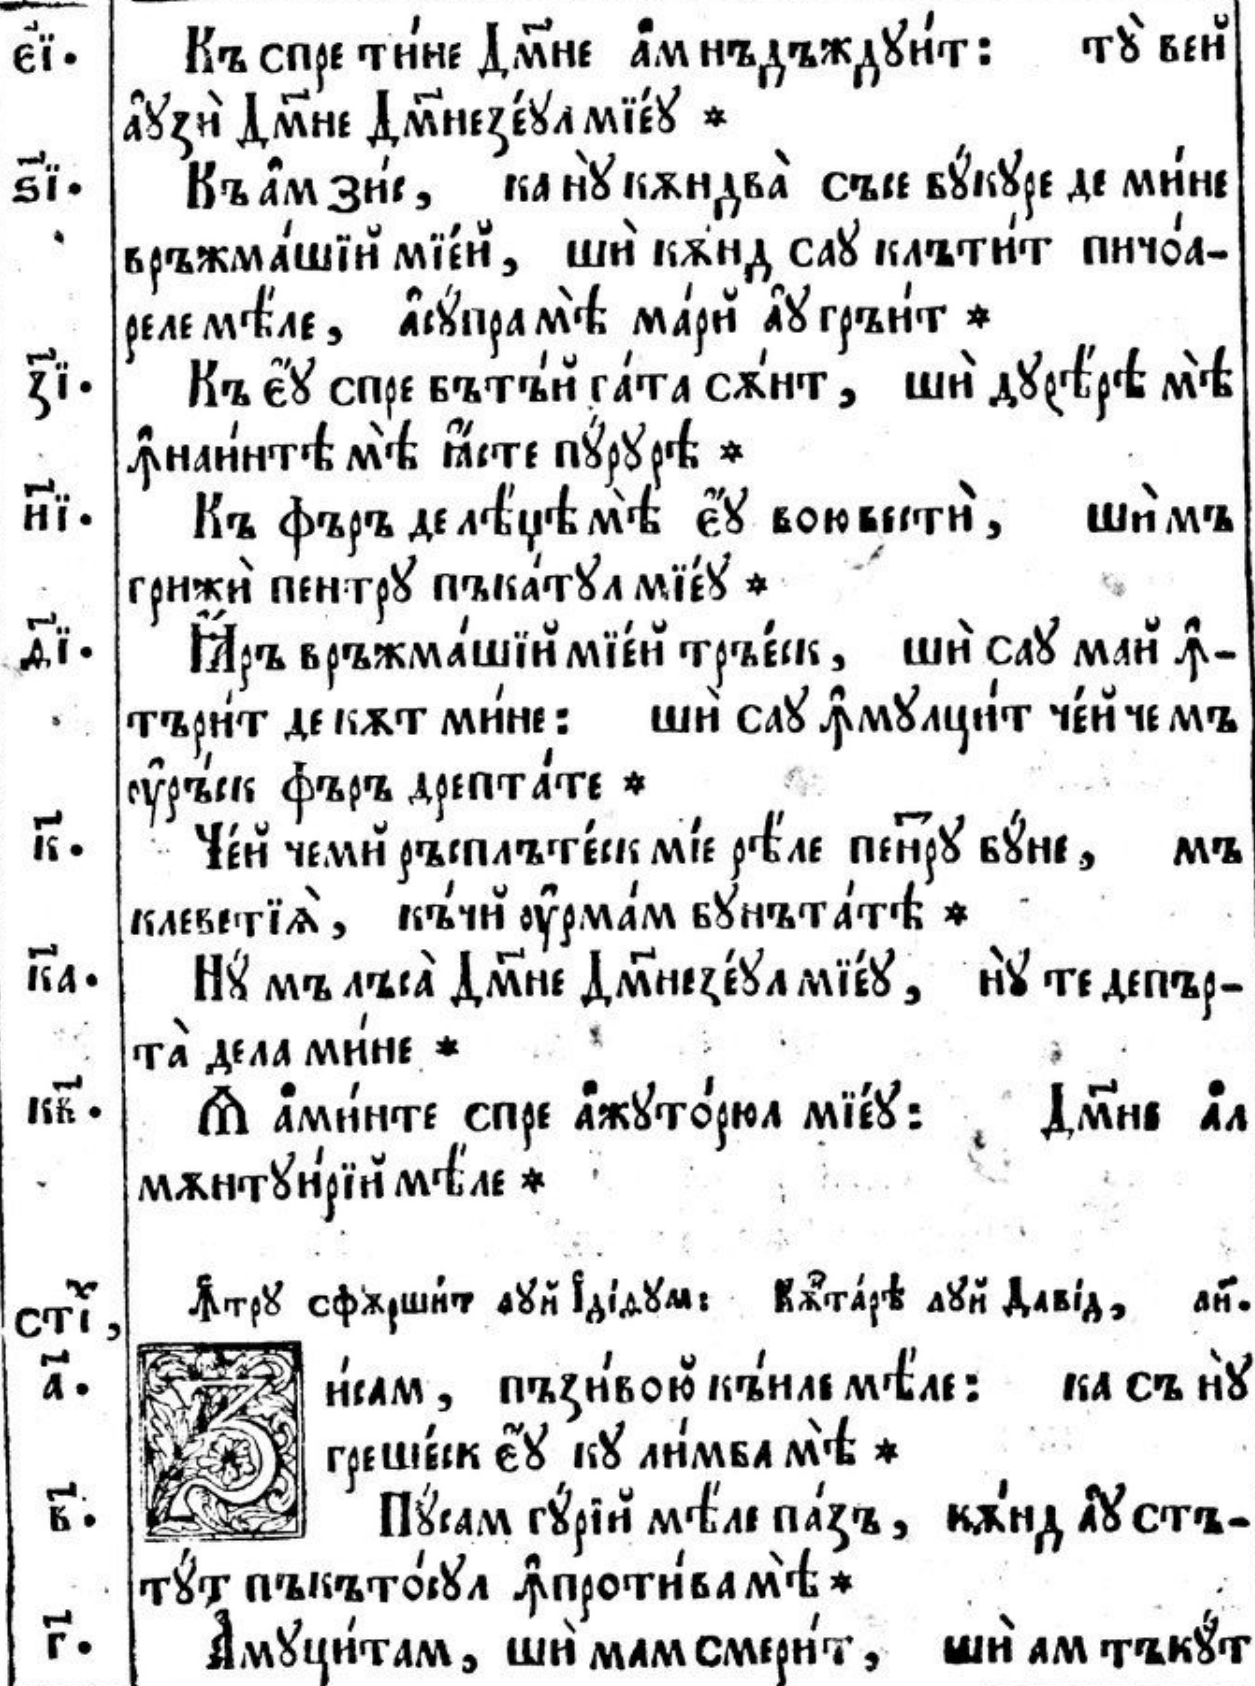 є҃ї. Къ спре ти́не Дм҃не а҆м нъдъждꙋи́т: тꙋ̀ вєй
а҆ꙋзѝ Дм҃не Дм҃незе́ꙋл мїе́ꙋ *
ѕ҃ї. Къ а҆м зи́с, ка нꙋ̀ кѫндва̀ съсе бꙋ́кꙋре де ми́не
връжма́шїй мїе́й, шѝ кѫ́нд саꙋ клъти́т пичѻ́а-
реле мѣ́ле, а҆сꙋ́пра мѣ̀ ма́рй а҆ꙋ гръи́т *
з҃ї. Къ є҆́ꙋ спре бътъ́й га́та сѫ́нт, шѝ дꙋрѣ́рѣ мѣ̀
ꙟ҆наи́нтѣ мѣ̀ ꙗ҆́сте пꙋ́рꙋрѣ *
и҃ї. Къ фъръ де лѣ́џѣ мѣ̀ є҆́ꙋ вою вестѝ, шѝ мъ
грижѝ пентрꙋ пъка́тꙋл мїе́ꙋ *
ѳ҃ї. Ꙗ҆́ръ връжма́шїй мїе́й тръе́ск, шѝ саꙋ май ꙟ҆-
търи́т де кѫт ми́не: шѝ саꙋ ꙟ҆мꙋлци́т че́й че мъ
ᲂу҆ръ́ск фъръ дрепта́те *
к҃. Че́й чемй ръсплъте́ск мі́е рѣ́ле пентрꙋ бꙋ́не, мъ
клеветїѧ̀, къ́чй ᲂу҆рма́м бꙋнъта́тѣ *
к҃а. Нꙋ́ мъ лъса̀ Дм҃не Дм҃незе́ꙋл мїе́ꙋ, нꙋ̀ те депър-
та̀ дела ми́не *
к҃в. Ꙗ҆ а҆ми́нте спре а҆жꙋто́рюл мїе́ꙋ: Дм҃не а҆л
мѫнтꙋи́рїй мѣ́ле *
стї҃х, Ꙟ҆трꙋ сфѫрши́т лꙋй І҆ді́дꙋм: Кѫ҆та́рѣ лꙋй Даві́д, ли҃.
а҃. Зи́сам, пъзи́вой къ́иле мѣ́ле: ка съ нꙋ̀
греше́ск є҆́ꙋ кꙋ ли́мба мѣ̀ *
в҃. Пꙋ́сам гꙋ́рїй мѣ́ле па́зъ, кѫ́нд а҆ꙋ стъ-
тꙋ́т пъкъто́сꙋл ꙟ҆проти́ва мѣ̀ *
г҃. А҆мꙋци́там, шѝ мам смери́т, шѝ ам тъкꙋ́т